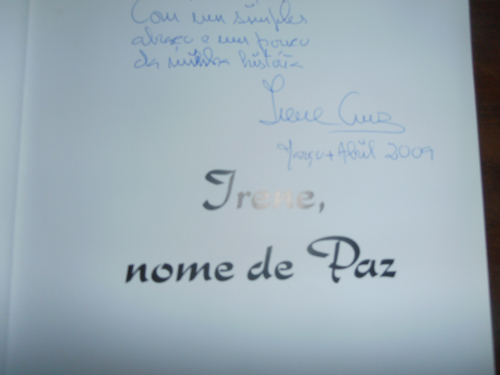 Com um simples
abraço e um pouco
da minha história
Irene Cruz
Abril 2009
Irene,
nome de Paz